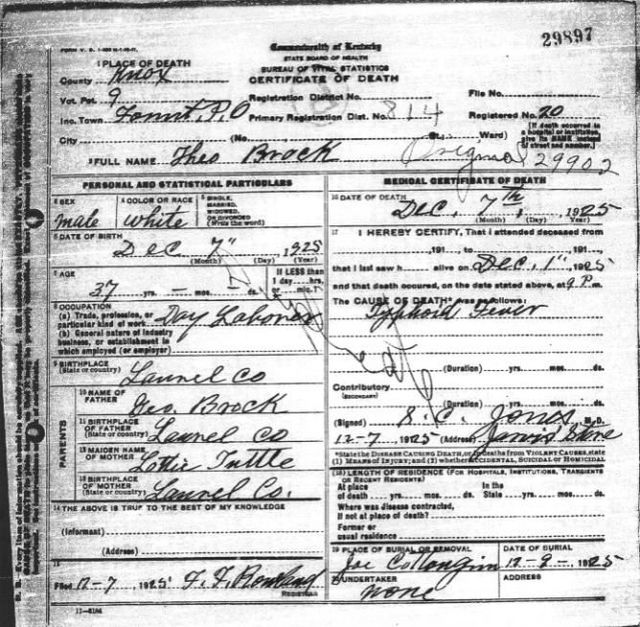 Commonwealth of Kentucky
STATE BOARD OF HEALTH
BUREAU OF VITAL STATISTICS
CERTIFICATE OF DEATH
29897
1 PLACE OF DEATH
County Knox
Vot. Pct. 9
Registration District No.
File No.
Inc. Town P.O
Primary Registration Dist. No. 814
Registered No. 20
(If death occurred in a hospital or institution, give its NAME instead of street and number.)
City (No. St., Ward)
2 FULL NAME Theo Brock
Original 29902
PERSONAL AND STATISTICAL PARTICULARS
3 SEX
male
4 COLOR OR RACE
White
5 SINGLE, MARRIED, WIDOWED, OR DIVORCED
(Write the word)
6 DATE OF BIRTH
Dec 7" 1925
(Month) (Day) (Year)
7 AGE
37 yrs. — mos. — ds.
If LESS than
1 day....hrs.
or....min.?
8 OCCUPATION
(a) Trade, profession, or
particular kind of work Day Laborer
(b) General nature of industry
business, or establishment in
which employed (or employer)
9 BIRTHPLACE
(State or country) Laurel Co
PARENTS
10 NAME OF
FATHER Geo. Brock
11 BIRTHPLACE
OF FATHER
(State or country) Laurel Co
12 MAIDEN NAME
OF MOTHER Lottie Tuttle
13 BIRTHPLACE
OF MOTHER
(State or country) Laurel Co.
14 THE ABOVE IS TRUE TO THE BEST OF MY KNOWLEDGE
(Informant)
(Address)
15
Filed 12-7 1925 F. F. Rowland
REGISTRAR
MEDICAL CERTIFICATE OF DEATH
16 DATE OF DEATH
Dec, 7th, 1925
(Month) (Day) (Year)
17 I HEREBY CERTIFY, That I attended deceased from
191 , to 191 ,
that I last saw h alive on Dec. 1st, 1925
and that death occurred, on the date stated above, at 9 P.m.
The CAUSE OF DEATH* was as follows:
Typhoid Fever
(Duration) yrs. mos. ds.
Contributory
(SECONDARY)
(Duration) yrs. mos. ds.
(Signed) S. C. Jones M.D.
12-7 1925 (Address) Jarvis Store
*State the DISEASE CAUSING DEATH, or, in Deaths from VIOLENT CAUSES, state
(1) MEANS OF INJURY; and (2) whether ACCIDENTAL, SUICIDAL or HOMICIDAL.
18 LENGTH OF RESIDENCE (FOR HOSPITALS, INSTITUTIONS, TRANSIENTS
OR RECENT RESIDENTS)
At place In the
of death yrs. mos. ds. State yrs. mos. ds.
Where was disease contracted,
if not at place of death?
Former or
usual residence
19 PLACE OF BURIAL OR REMOVAL
Joe
DATE OF BURIAL
12-9-1925
20 UNDERTAKER
none
ADDRESS